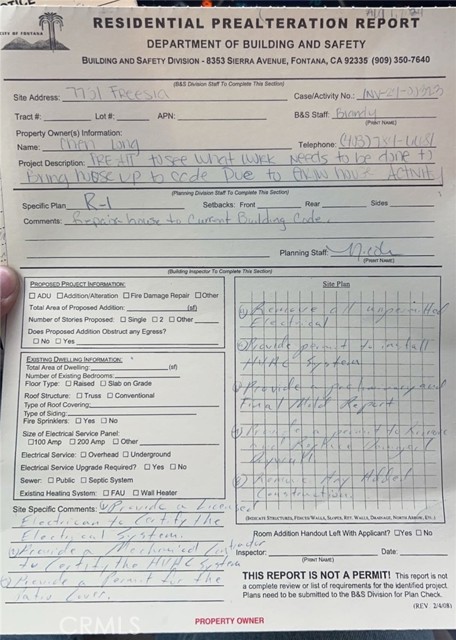 CITY OF FONTANA
RESIDENTIAL PREALTERATION REPORT
DEPARTMENT OF BUILDING AND SAFETY
BUILDING AND SAFETY DIVISION - 8353 SIERRA AVENUE, FONTANA, CA 92335 (909) 350-7640
(B&S Division Staff To Complete This Section)
Site Address: 7751 Freesia Case/Activity No.:
Tract #: Lot #: APN: B&S Staff: Brandy
(PRINT NAME)
Property Owner(s) Information:
Name: Chen Telephone:
Project Description: to see what work needs to be done to
bring house up to code Due to house Activity
(Planning Division Staff To Complete This Section)
Specific Plan R-1 Setbacks: Front Rear Sides
Comments: Repair house to Current Building Code.
Planning Staff: Nicole
(PRINT NAME)
(Building Inspector To Complete This Section)
PROPOSED PROJECT INFORMATION:
☐ ADU ☐ Addition/Alteration ☐ Fire Damage Repair ☐ Other
Total Area of Proposed Addition: (sf)
Number of Stories Proposed: ☐ Single ☐ 2 ☐ Other
Does Proposed Addition Obstruct any Egress?
☐ No ☐ Yes
EXISTING DWELLING INFORMATION:
Total Area of Dwelling: (sf)
Number of Existing Bedrooms:
Floor Type: ☐ Raised ☐ Slab on Grade
Roof Structure: ☐ Truss ☐ Conventional
Type of Roof Covering:
Type of Siding:
Fire Sprinklers: ☐ Yes ☐ No
Size of Electrical Service Panel:
☐ 100 Amp ☐ 200 Amp ☐ Other
Electrical Service: ☐ Overhead ☐ Underground
Electrical Service Upgrade Required? ☐ Yes ☐ No
Sewer: ☐ Public ☐ Septic System
Existing Heating System: ☐ FAU ☐ Wall Heater
Site Specific Comments: Provide a Licensed
Electrician to Certify the
Electrical System.
Provide a Mechanical Contractor
to Certify the HVAC System
Provide a Permit for the
Patio Cover.
Site Plan
Remove all unpermitted
Electrical
Provide permit to install
HVAC System
Provide a preliminary and
Final Mold Report
Provide a permit to Remove
and Replace Damaged
Drywall
Remove Any Added
Construction.
(INDICATE STRUCTURES, FENCES/WALLS, SLOPES, RET. WALLS, DRAINAGE, NORTH ARROW, ETC.)
Room Addition Handout Left With Applicant? ☐ Yes ☐ No
Inspector: Date:
(PRINT NAME)
THIS REPORT IS NOT A PERMIT! This report is not
a complete review or list of requirements for the identified project.
Plans need to be submitted to the B&S Division for Plan Check.
(REV. 2/4/08)
PROPERTY OWNER
CRMLS